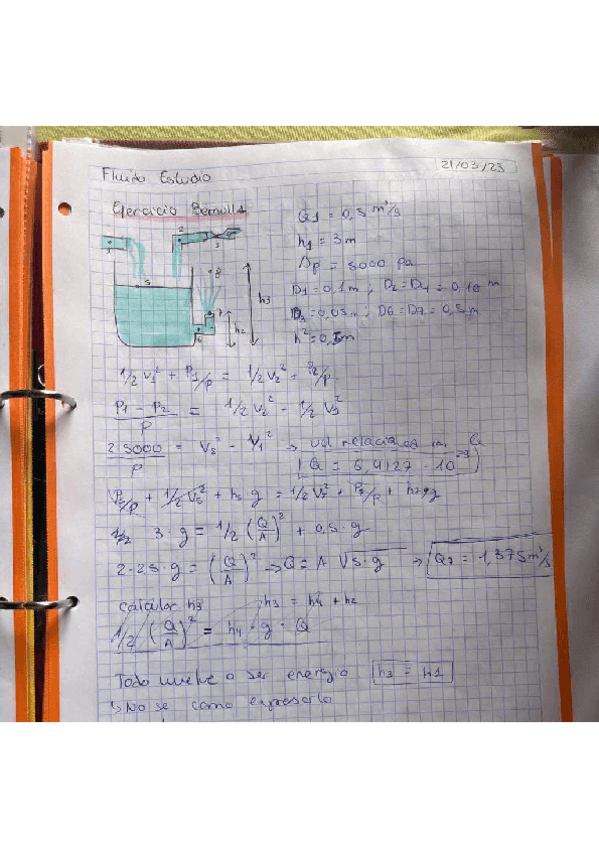 21/03/23
Fluido Estudio
Ejercicio Bernulli
Q1 = 0,5 m³/s
h1 = 3m
Δp = 5000 pa
D1 = 0,1m ; D2 = D4 = 0,18 m
D3 = 0,05m ; D6 = D7 = 0,5m
1 2 3 5 8 7 6 h2 h3
1/2 V1² + P1/p = 1/2 V2² + P2/p
P1 - P2 / p = 1/2 V2² - 1/2 V1²
2·5000 / p = V2² - V1² → vel relacionadas con Q
(Q = 6,4127 · 10
P5/p + 1/2 V5² + h5·g = 1/2 V7² + P7/p + h7·g
1/2 3·g = 1/2 (Q/A)² + 0,5·g
2·2,5·g = (Q/A)² → Q = A √5·g → Q7 = 1,375 m³/s
calcular h3 h3 = h4 + h2
1/2 (Q/A)² = h4 · g · Q
Todo vuelve a ser energia h3 = h1
↳ No se como expresarlo